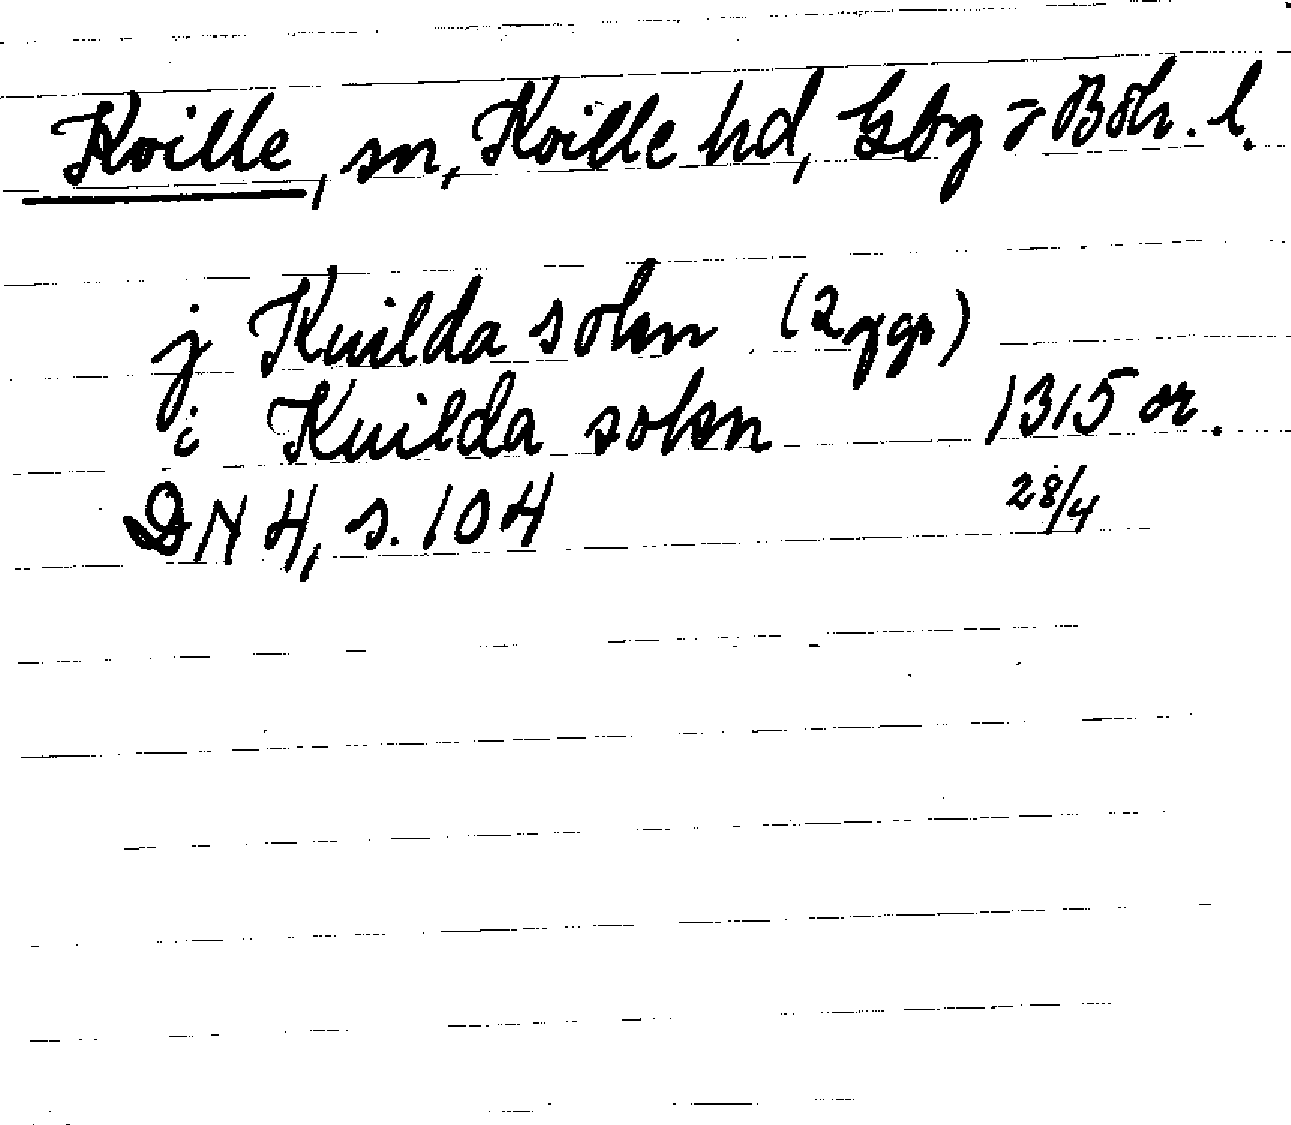 Kville, sn, Kville hd, Gbg o Boh. l.
j Kuilda sokn (2 ggr)
i Kuilda sokn 1315 or.
DN 4, s. 104 28/4